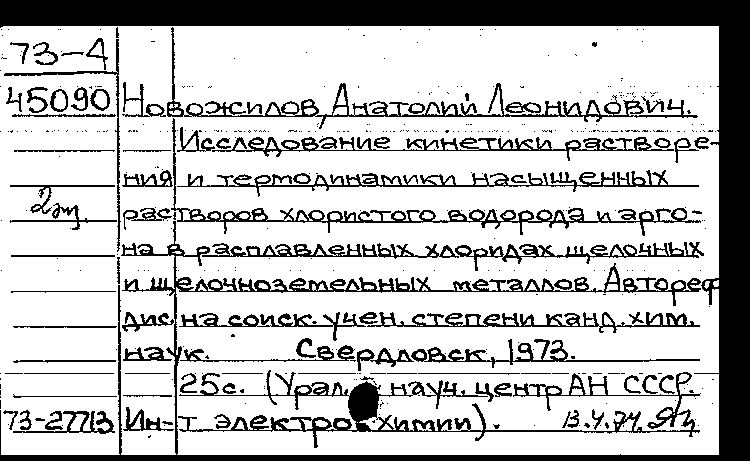 73-4
45090 Новожилов, Анатолий Леонидович.
Исследование кинетики растворе-
ния и термодинамики насыщенных
2эк. растворов хлористого водорода и арго-
на в расплавленных хлоридах щелочных
и щелочноземельных металлов. Автореф
дис. на соиск. учен. степени канд. хим.
наук. Свердловск, 1973.
25с. (Урал. науч. центр АН СССР.
73-27713 Ин-т электрохимии). 13.4.74.